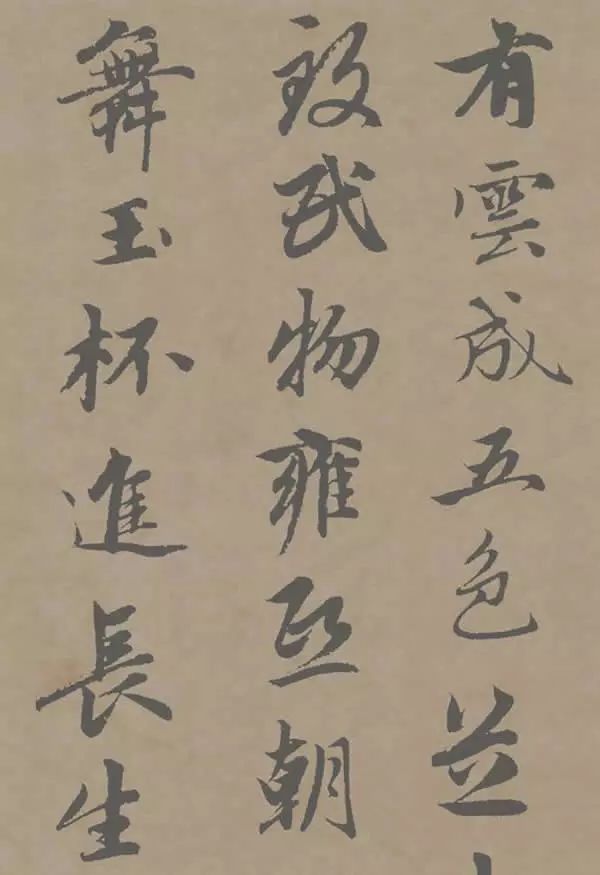 有雲成五色並
致民物雍熙朝
舞玉杯進長生